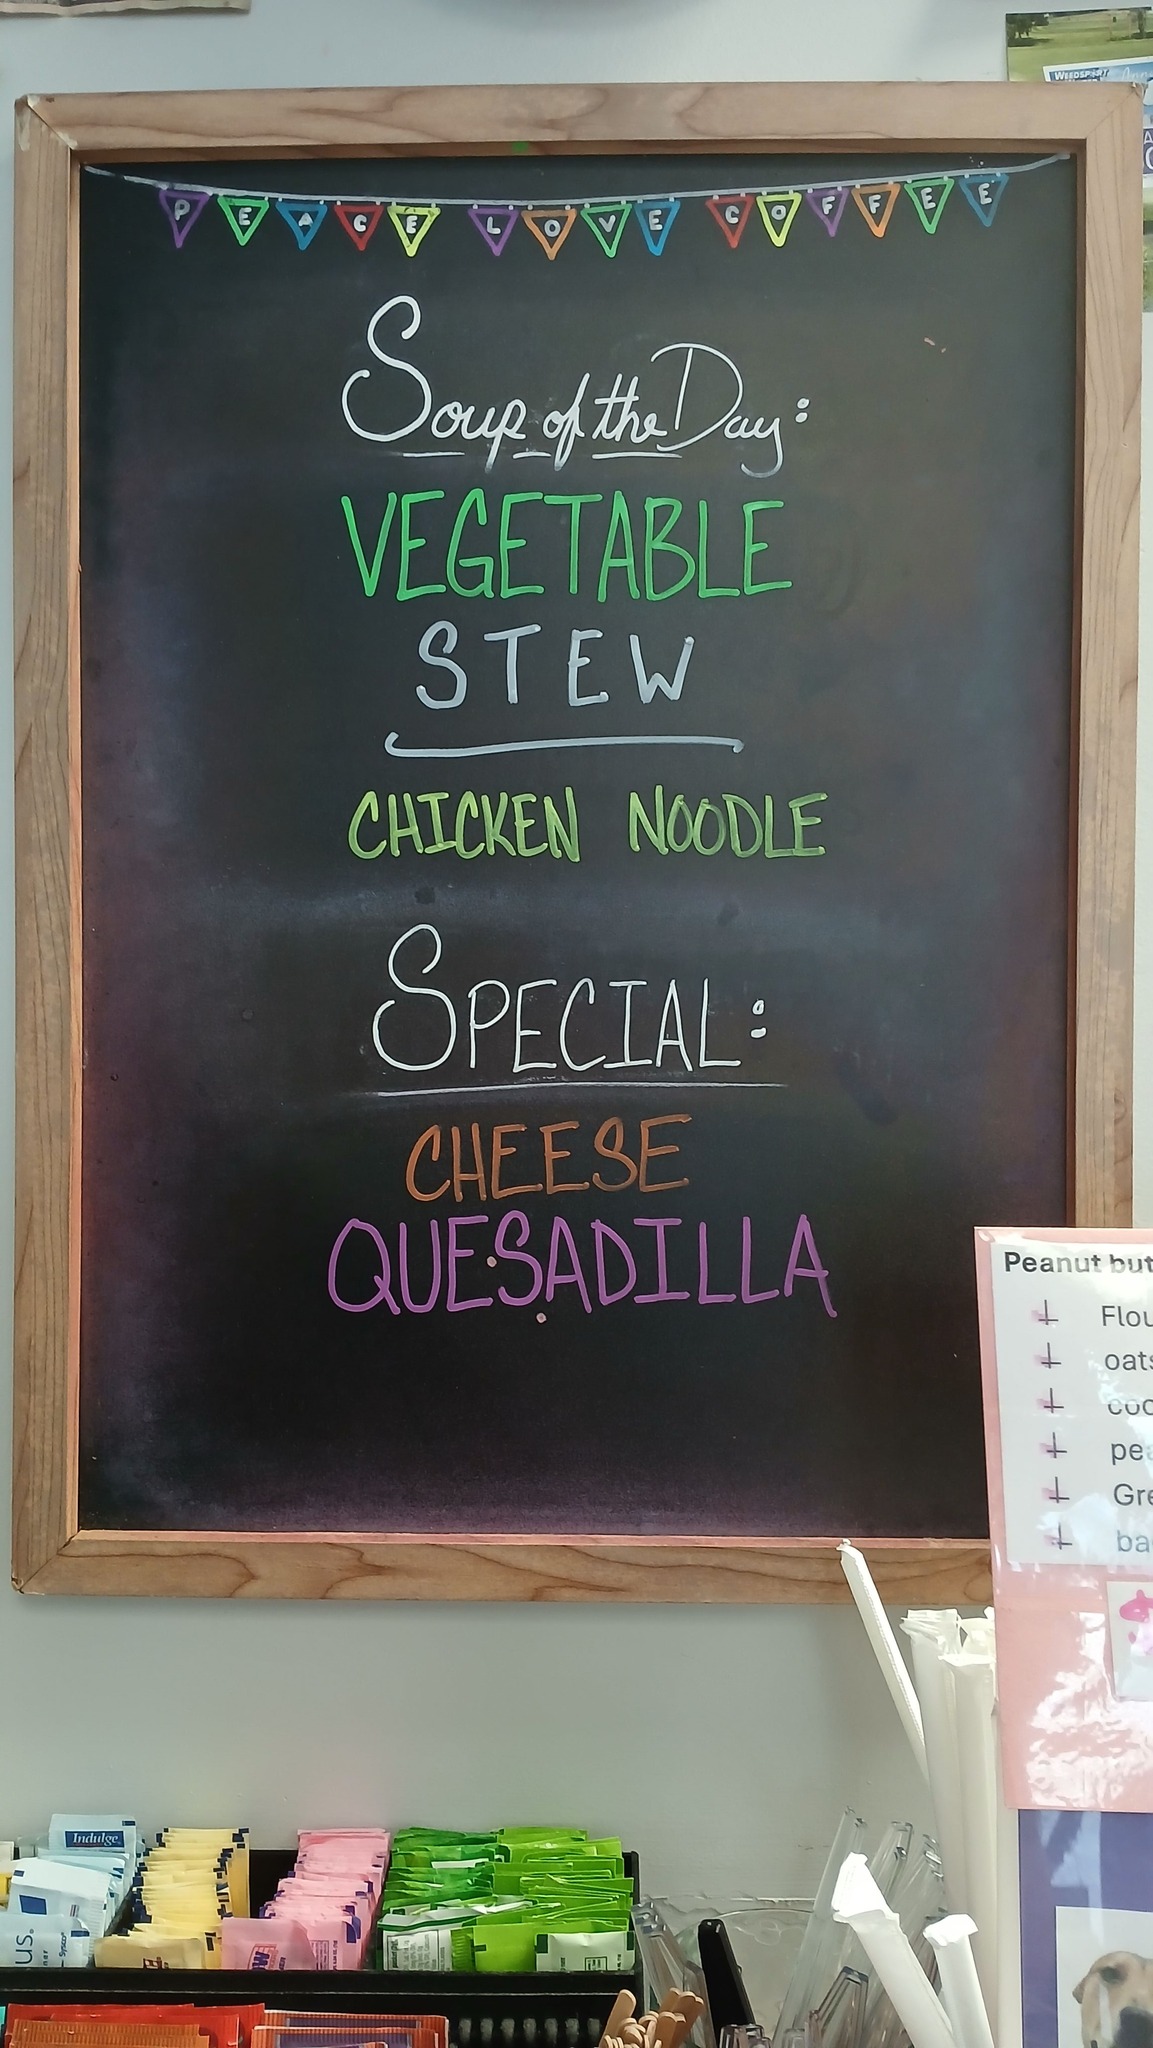 WEEDSPORT
PEACE LOVE COFFEE
Soup of the Day:
VEGETABLE
STEW
CHICKEN NOODLE
SPECIAL:
CHEESE
QUESADILLA
Peanut but
Flou
oats
coc
pea
Gre
ba
Indulge
us.
Sysco